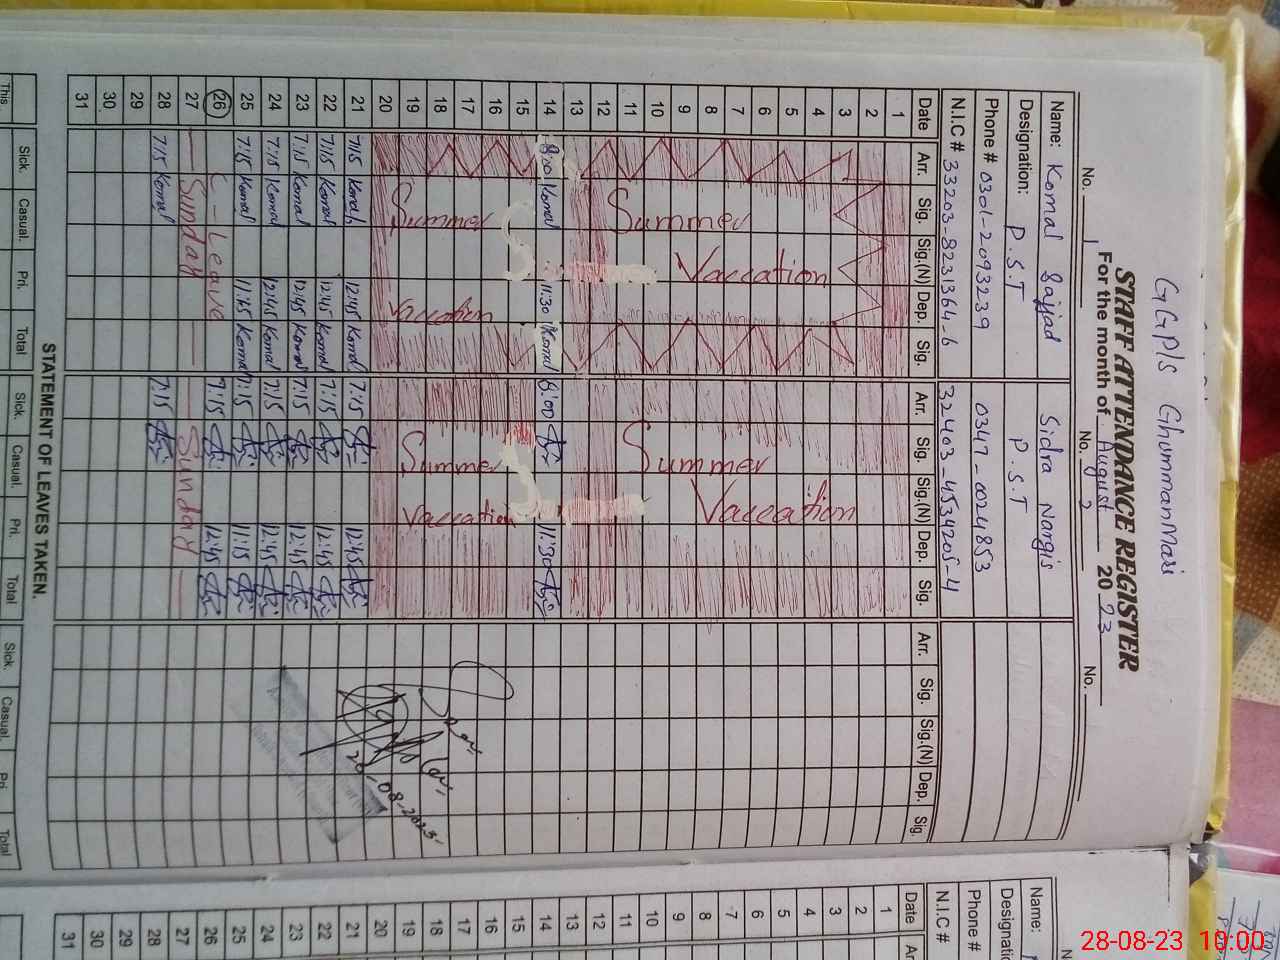 GGPls GhummanMari
STAFF ATTENDANCE REGISTER
For the month of August 2023
No. 1 No. 2 No.
Name: Komal Sajjad Sidra Nargis
Designation: P.S.T P.S.T
Phone # 0301-2093239 0347-0024853
N.I.C # 33203-8231364-6 32403-4534205-4
Date Arr. Sig. Sig.(N) Dep. Sig. Arr. Sig. Sig.(N) Dep. Sig. Arr. Sig. Sig.(N) Dep. Sig.
1
2
3
4 Vaccation Vaccation
5
6
7
8 Summer Summer
9
10
11
12
13
14 8:00 Komal 11:30 Komal 8:00 11:30
15
16
17 Summer Vaccation Summer Vaccation
18
19
20
21 7:15 Komal 12:45 Komal 7:15 12:45
22 7:15 Komal 12:45 Komal 7:15 12:45
23 7:15 Komal 12:45 Komal 7:15 12:45
24 7:15 Komal 12:45 Komal 7:15 12:45
25 7:15 Komal Komal 7:15 11:15
26 C-Leave 7:15 12:45
27 Sunday Sunday
28 7:15 Komal 7:15
29
30
31
STATEMENT OF LEAVES TAKEN.
This
Sick. Casual. Pri. Total Sick. Casual. Pri. Total Sick. Casual. Pri Total
Name:
Designation
Phone #
N.I.C #
Date
1
2
3
4
5
6
7
8
9
10
11
12
13
14
15
16
17
18
19
20
21
22
23
24
25
26
27
28
29
30
31
28-08-23 10:00